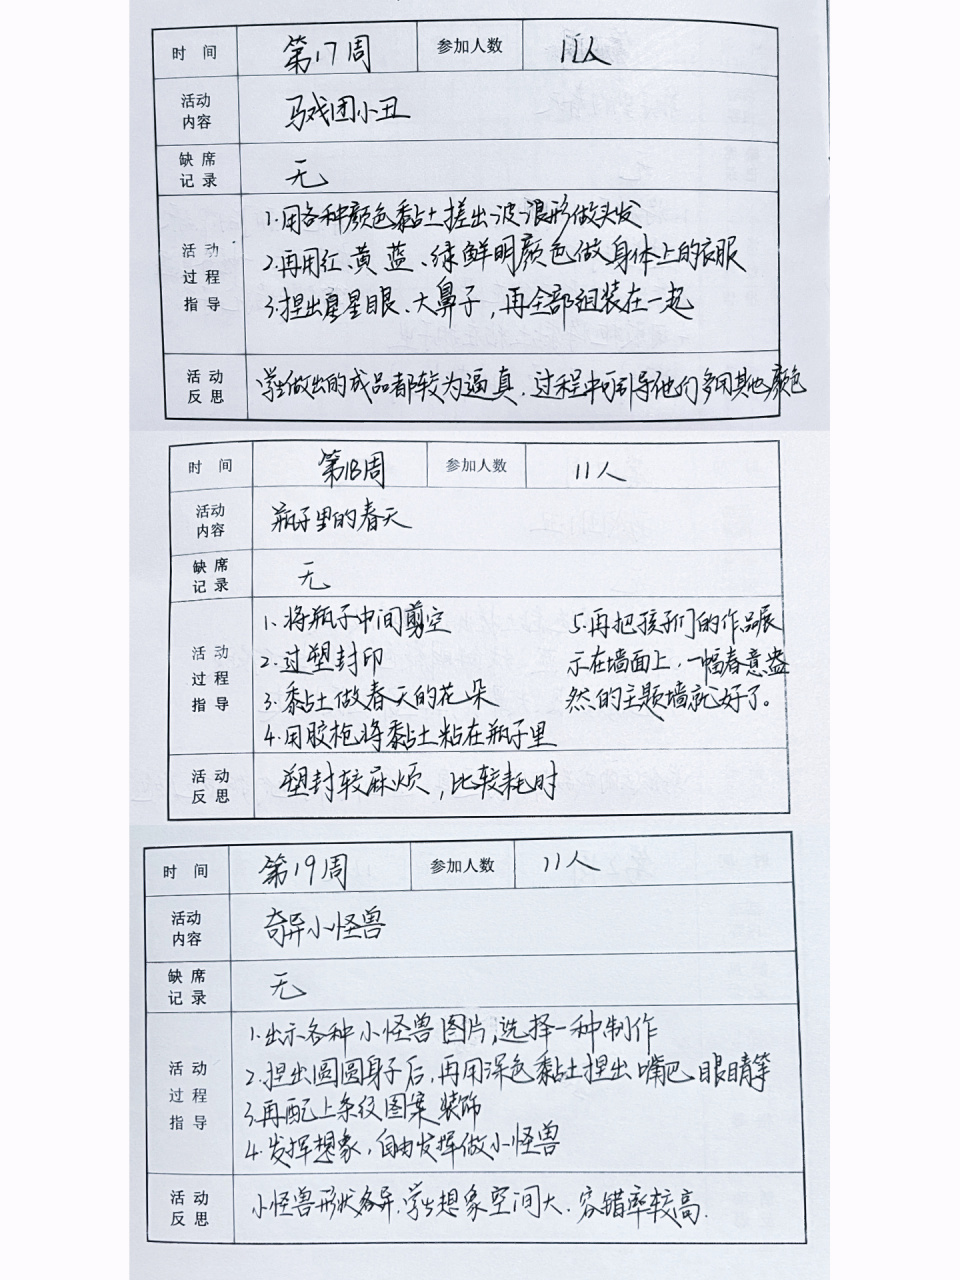 时 间 第17周 参加人数 11人
活动
内容 马戏团小丑
缺 席
记 录 无
1.用各种颜色黏土搓出波浪形做头发
活 动
过 程
指 导
2.再用红、黄蓝、绿鲜明颜色做身体上的衣服
3.捏出星星眼、大鼻子，再全部组装在一起
活 动
反 思 学生做出的成品都较为逼真.过程中可引导他们多用其他颜色
时 间 第18周 参加人数 11人
活动
内容 瓶子里的春天
缺 席
记 录 无
活 动
过 程
指 导
1、将瓶子中间剪空
2.过塑封印
3.黏土做春天的花朵
4.用胶枪将黏土粘在瓶子里
5.再把孩子们的作品展
示在墙面上，一幅春意盎
然的主题墙就好了。
活 动
反 思 塑封较麻烦，比较耗时
时 间 第19周 参加人数 11人
活动
内容 奇异小怪兽
缺 席
记 录 无
活 动
过 程
指 导
1.出示各种小怪兽图片,选择一种制作
2.捏出圆圆身子后,再用深色黏土捏出嘴巴、眼睛等
3.再配上条纹图案装饰
4.发挥想象，自由发挥做小怪兽
活 动
反 思 小怪兽形状各异.学生想象空间大.容错率较高.